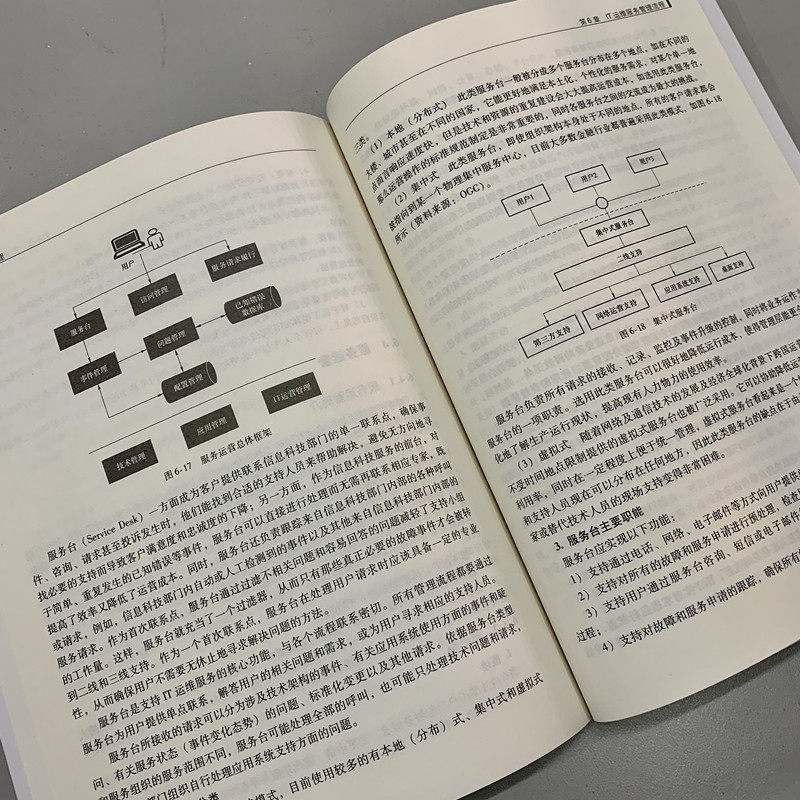 理
用户
服务请求履行
访问管理
服务台
已知错误
数据库
问题管理
事件管理
配置管理
IT运营管理
应用管理
技术管理
图 6-17 服务运营总体框架
服务台（Service Desk）一方面成为客户提供联系信息科技部门的单一联系点，确保事
件、咨询、请求甚至投诉发生时，他们能找到合适的支持人员来帮助解决，避免无方向地寻
找必要的支持而导致客户满意度和忠诚度的下降；另一方面，作为信息科技服务的前台，对
于简单、重复发生的已知错误等事件，服务台可以直接进行处理而无需再联系相应专家，既
提高了效率又降低了运营成本。同时，服务台还负责跟踪来自信息科技部门内部的各种呼叫
或请求，例如，信息科技部门内自动或人工检测到的事件以及其他来自信息科技部门内部的
服务请求。作为首次联系点，服务台通过过滤不相关问题和容易回答的问题减轻了支持小组
的工作量。这样，服务台就充当了一个过滤器，从而只有那些真正必要的故障事件才会被转
到二线和三线支持。作为一个首次联系点，服务台在处理用户请求时应该具备一定的专业
性，从而确保用户不需要无休止地寻求解决问题的方法。
服务台是支持 IT 运维服务的核心功能，与各个流程联系密切。所有管理流程都要通过
服务台为用户提供单点联系，解答用户的相关问题和需求，或为用户寻求相应的支持人员。
服务台所接收的请求可以分为涉及技术架构的事件、有关应用系统使用方面的事件和疑
问、有关服务状态（事件变化态势）的问题、标准化变更以及其他请求。依据服务台类型
和服务组织的服务范围不同，服务台可能处理全部的呼叫，也可能只处理技术问题和请求，
部门组织自行处理应用系统支持方面的问题。
分类
模式，目前使用较多的有本地（分布）式、集中式和虚拟式
第 6 章 IT 运维服务管理流程
三类。
（1）本地（分布式） 此类服务台一般被分成多个服务台分布在多个地点，如在不同的
大楼、城市甚至在不同的国家，它能更好地满足本土化、个性化的服务需求，对某个单一地
点而言响应速度快，但是技术和资源的重复建设会大大提高运营成本，如选用此类服务台，
那么运营操作的标准规范制定是非常重要的，同时各服务台之间的交流成为最大的挑战。
（2）集中式 此类服务台，即使组织架构本身处于不同的地点，所有的客户请求都会
被指向到某一个物理集中服务中心，目前大多数金融行业都普遍采用此类模式，如图 6-18
所示（资料来源：OGC）。
用户1
用户2
用户3
集中式服务台
二线支持
第三方支持
网络运营支持
应用系统支持
桌面支持
图 6-18 集中式服务台
服务台负责所有请求的接收、记录、监控及事件升级的控制，同时将业务运作
服务台的一项职责。选用此类服务台可以很好地降低运行成本，使得管理层能更
化地了解生产运行现状，提高现有人力物力的使用效率。
（3）虚拟式 随着网络及通信技术的发展及经济全球化背景下跨国运营
不受时间地点限制提供的虚拟式服务台也被广泛采用。它可以协助降低运
利用率，同时在一定程度上便于统一管理，虚拟式服务台看起来是一个
和支持人员现在可以分布在任何地方，因此此类服务台的缺点在于由
家或替代技术人员的现场支持变得非常困难。
3. 服务台主要职能
服务台应实现以下功能：
1）支持通过电话、网络、电子邮件等方式向用户提供
2）支持对所有的故障和服务申请进行预处理，检查
3）支持用户通过服务台咨询、短信或电子邮件
过程；
4）支持对故障和服务申请的跟踪，确保所有